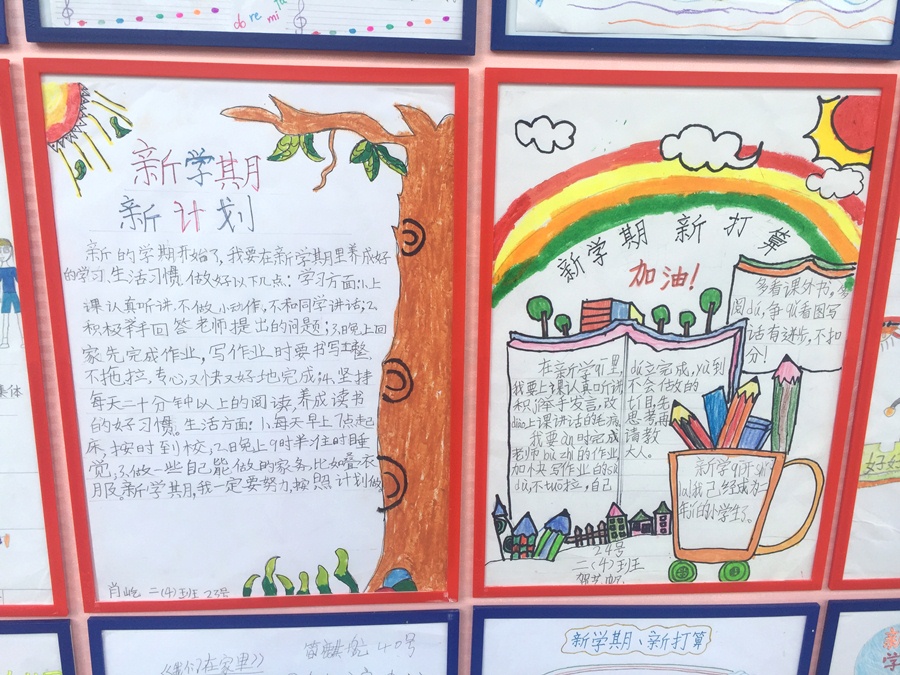 do re mi
新学期
新计划
新的学期开始了,我要在新学期里养成好
的学习、生活习惯,做好以下几点:学习方面:1.上
课认真听讲.不做小动作,不和同学讲话;2.
积极举手回答老师提出的问题;3.晚上回
家先完成作业,写作业时要书写工整.
不拖拉,专心又快又好地完成;4.坚持
每天二十分钟以上的阅读,养成读书
的好习惯。生活方面:1.每天早上7点起
床,按时到校;2.晚上9时半准时睡
觉;3.做一些自己能做的家务,比如叠衣
服。新学期,我一定要努力,按照计划做
二(4)班 23号
新学期 新打算
加油!
多看课外书,多
阅du,争qu看图写
话有进步,不扣
分!
在新学qi里
我要上课认真听讲
积ji举手发言,改
diao上课讲话的毛病
我要an时完成
老师bu zhi的作业
加快写作业的su
du,不tuo拉,自己
du立完成,yu到
不会做的
ti目先
思考再
请教
大人。
新学qi开shi
la!我已经成为二
年ji的小学生了。
24号
二(4)班
集体
好好
《我们在家里》
40号
新学期、新打算